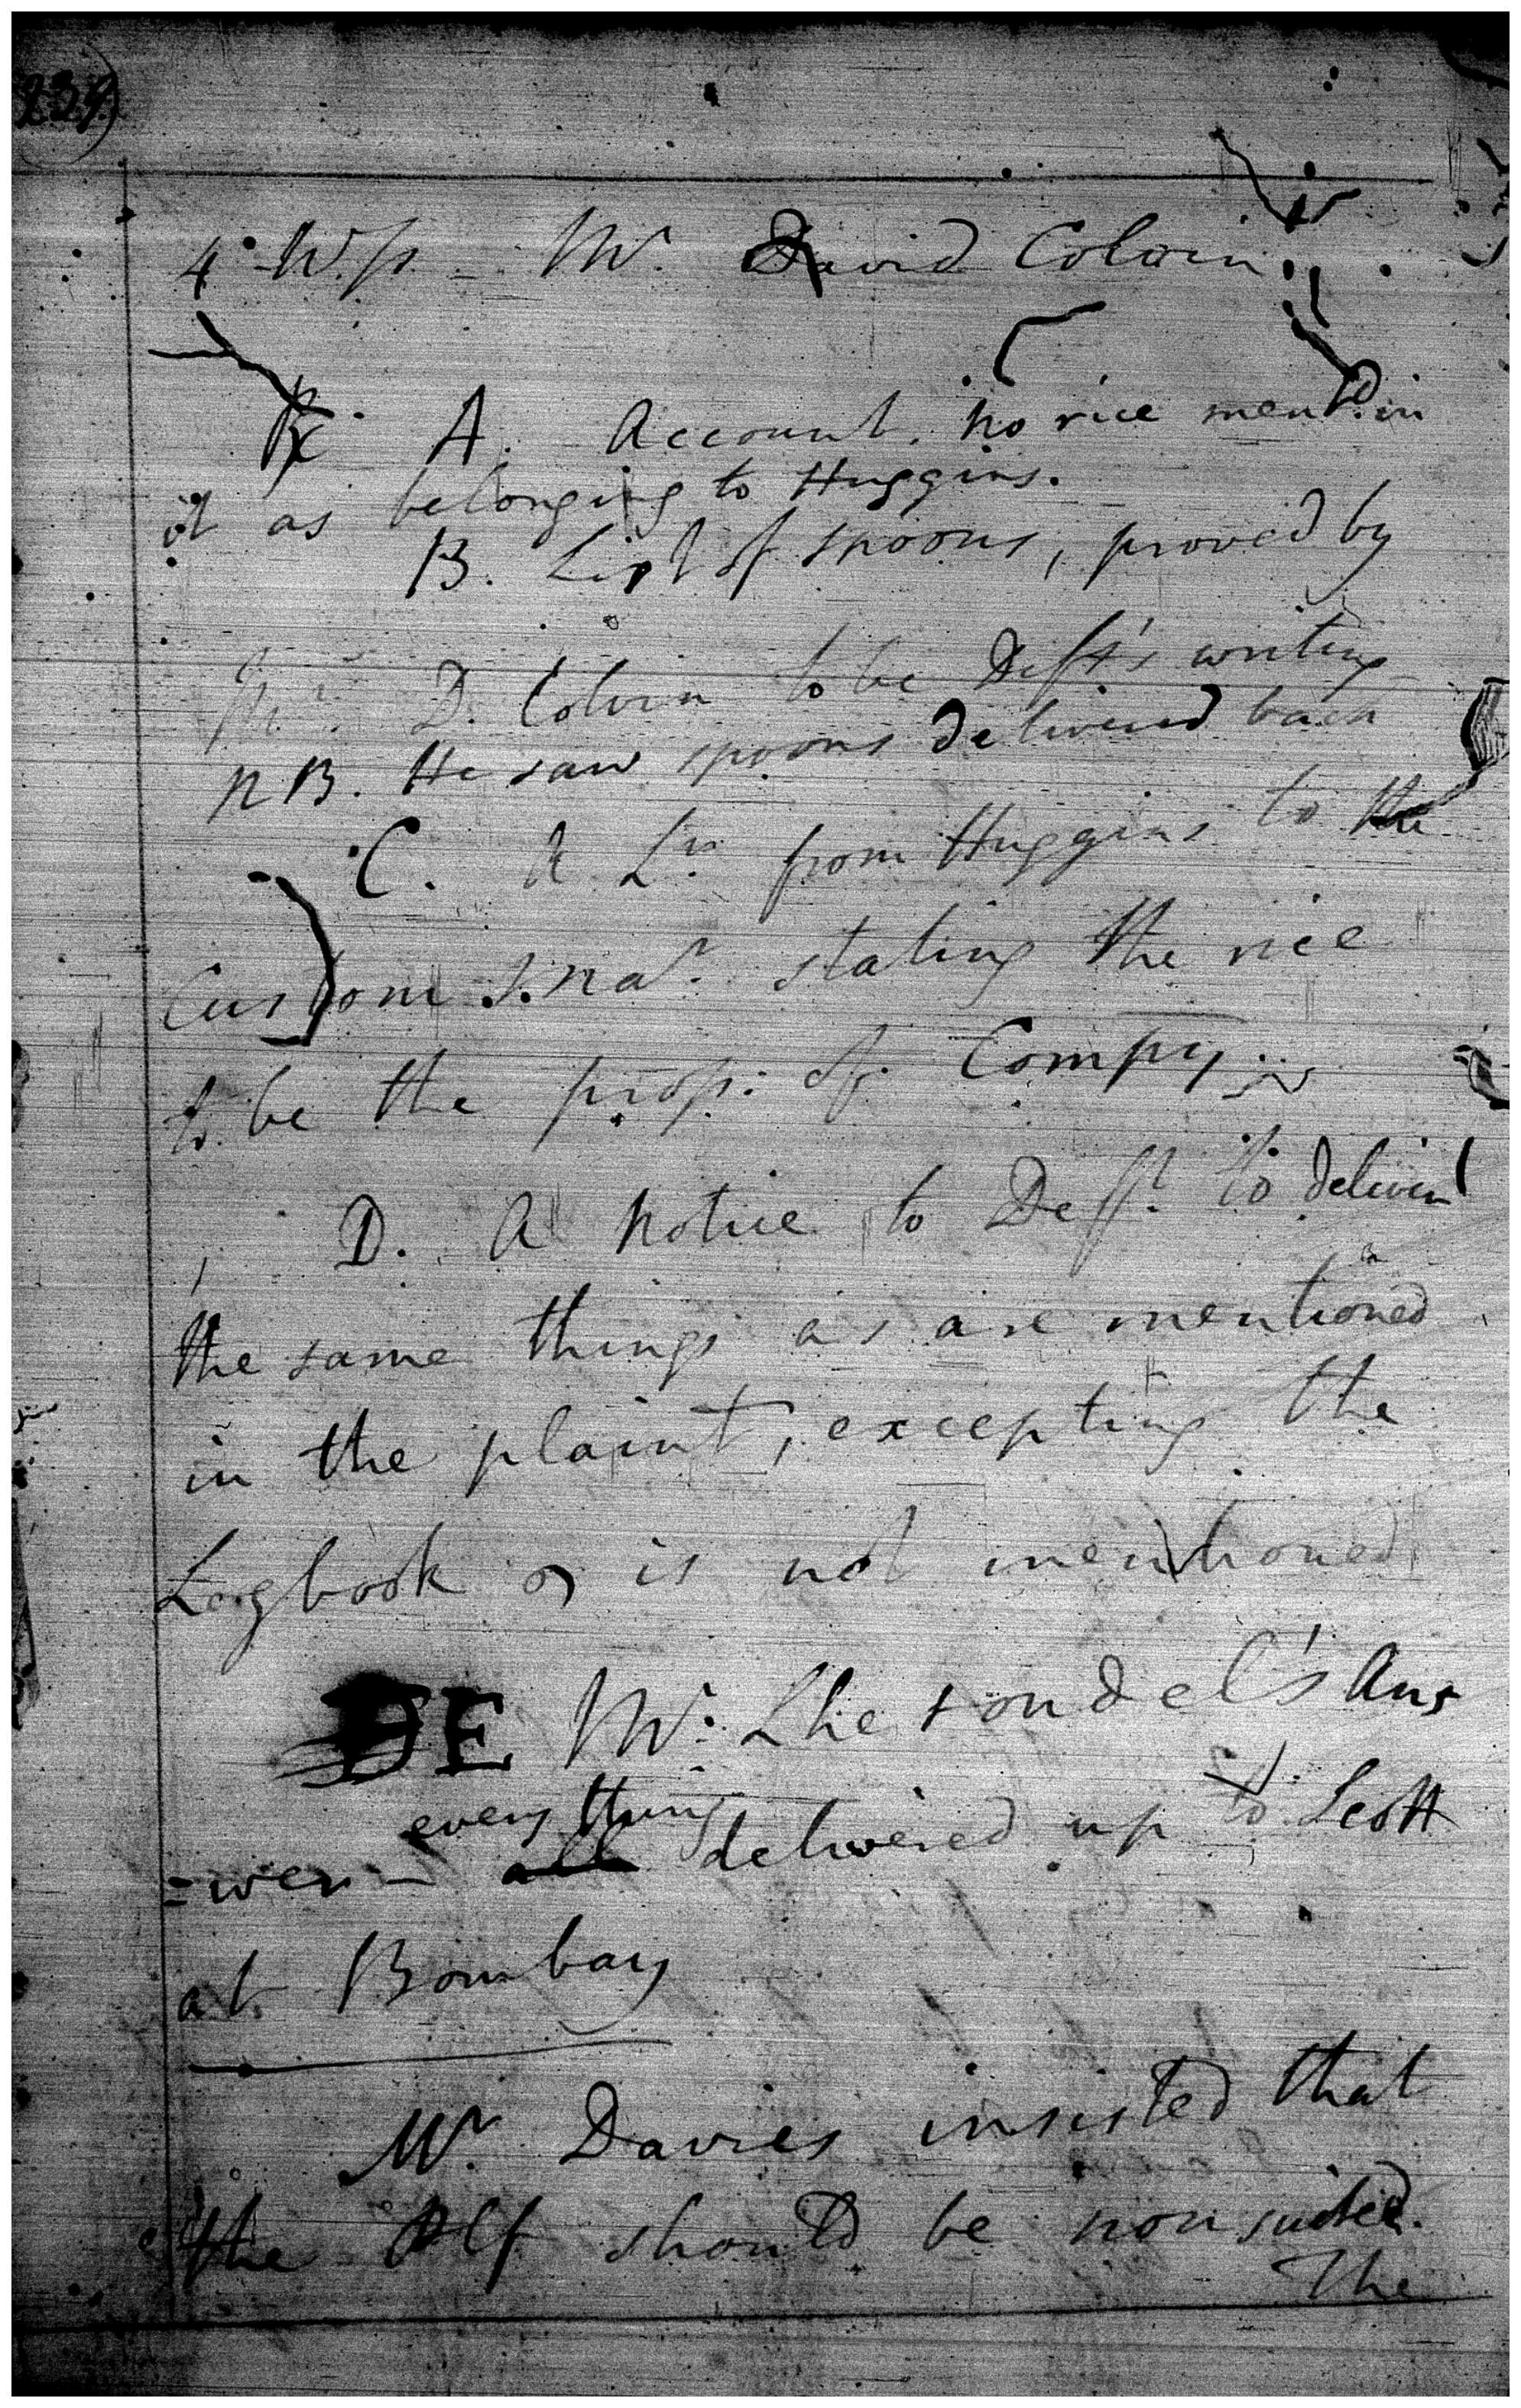 239)
4. Wss - Mr. David Colvin
Ex A. Account. no rice mentd. in
it as belonging to Huggins.
B. List of spoons, proved by
Mr. D. Colvin to be Deft's writing
NB. He saw spoons delivered back
C. A Lr. from Huggins to the
Custom Mar. stating the rice
to be the prop. of Compy.
D. A Notice to Deft. to deliver
the same things as are mentioned
in the plaint, excepting the
Logbook is not mentioned
E Mr. Lhe s on del's Ans
=wer - everything delivered up to Scott
at Bombay
Mr. Davies insisted that
the Plf should be nonsuited.
The